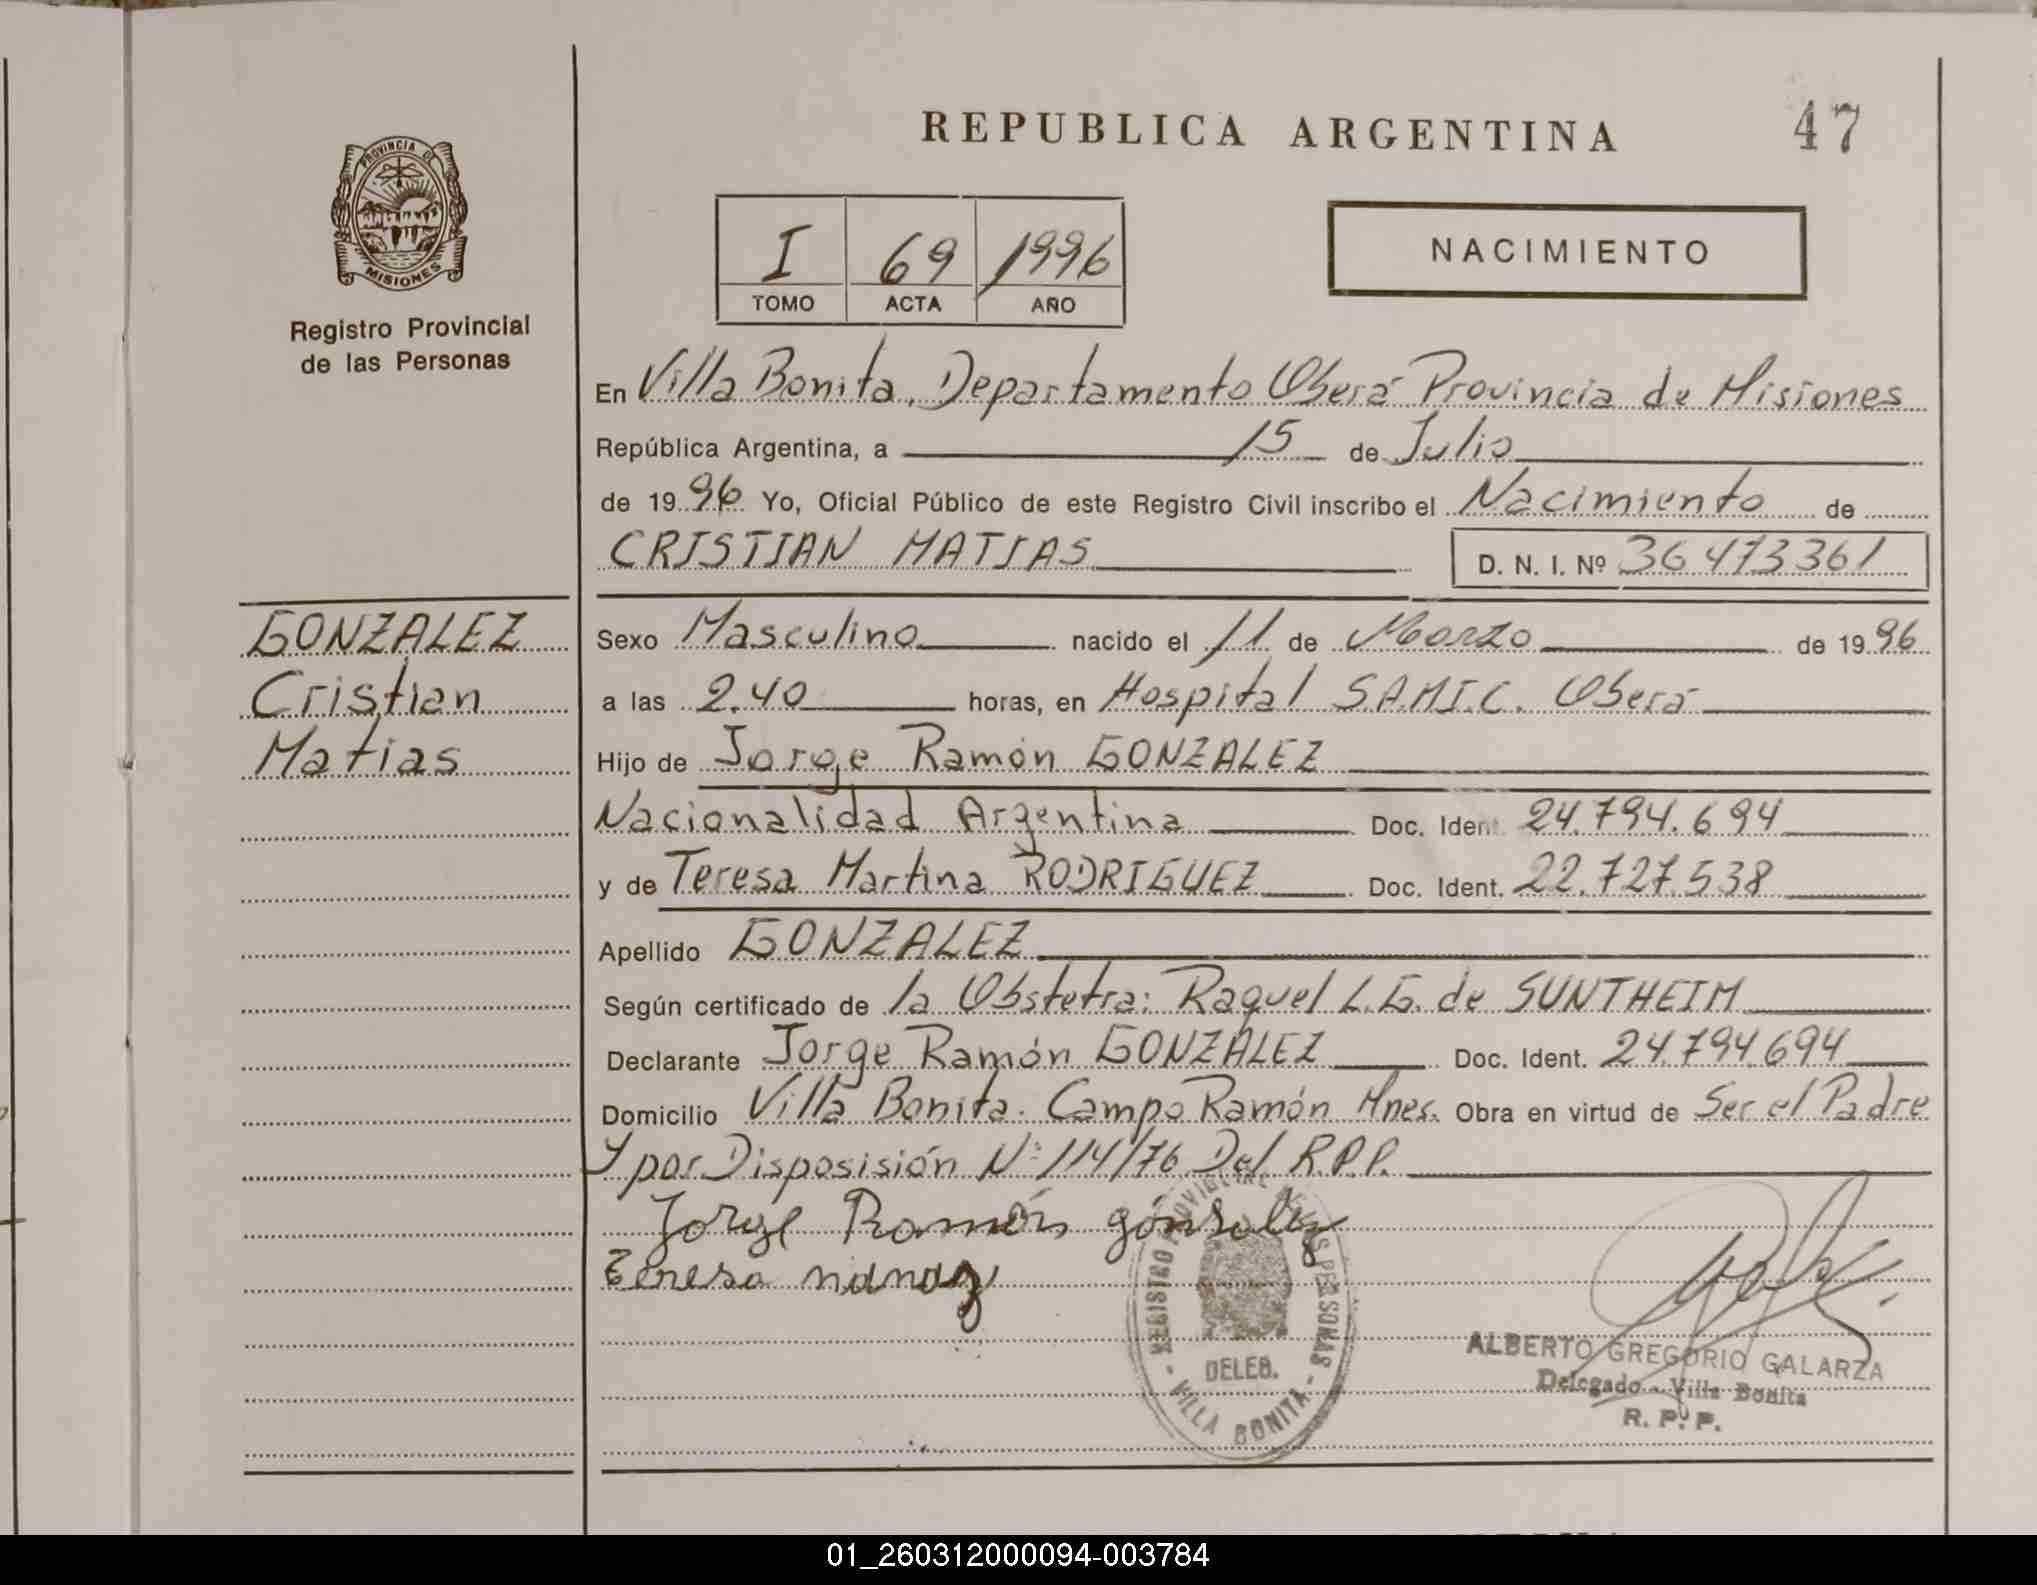 REPUBLICA ARGENTINA
47
PROVINCIA DE
MISIONES
Registro Provincial
de las Personas
I 69 1996
TOMO ACTA AÑO
NACIMIENTO
En Villa Bonita, Departamento Oberá Provincia de Misiones
República Argentina, a 15 de Julio
de 1996 Yo, Oficial Público de este Registro Civil inscribo el Nacimiento de
CRISTIAN MATIAS D. N. I. Nº 36473361
GONZALEZ
Cristian
Matias
Sexo Masculino nacido el 11 de Marzo de 1996
a las 2.40 horas, en Hospital S.A.M.I.C. Oberá
Hijo de Jorge Ramón GONZALEZ
Nacionalidad Argentina Doc. Ident 24.794.694
y de Teresa Martina RODRIGUEZ Doc. Ident. 22.727.538
Apellido GONZALEZ
Según certificado de la Obstetra: Raquel L.G. de SUNTHEIM
Declarante Jorge Ramón GONZALEZ Doc. Ident. 24.794.694
Domicilio Villa Bonita. Campo Ramón Mnes. Obra en virtud de Ser el Padre
Y por Disposisión Nº 114/76 Del R.P.P.
Jorge Ramón
Teresa
REGISTRO PROVINCIAL DE LAS PERSONAS
DELEG.
- VILLA BONITA -
ALBERTO GREGORIO GALARZA
Delegado - Villa Bonita
R. P. P.
01_260312000094-003784